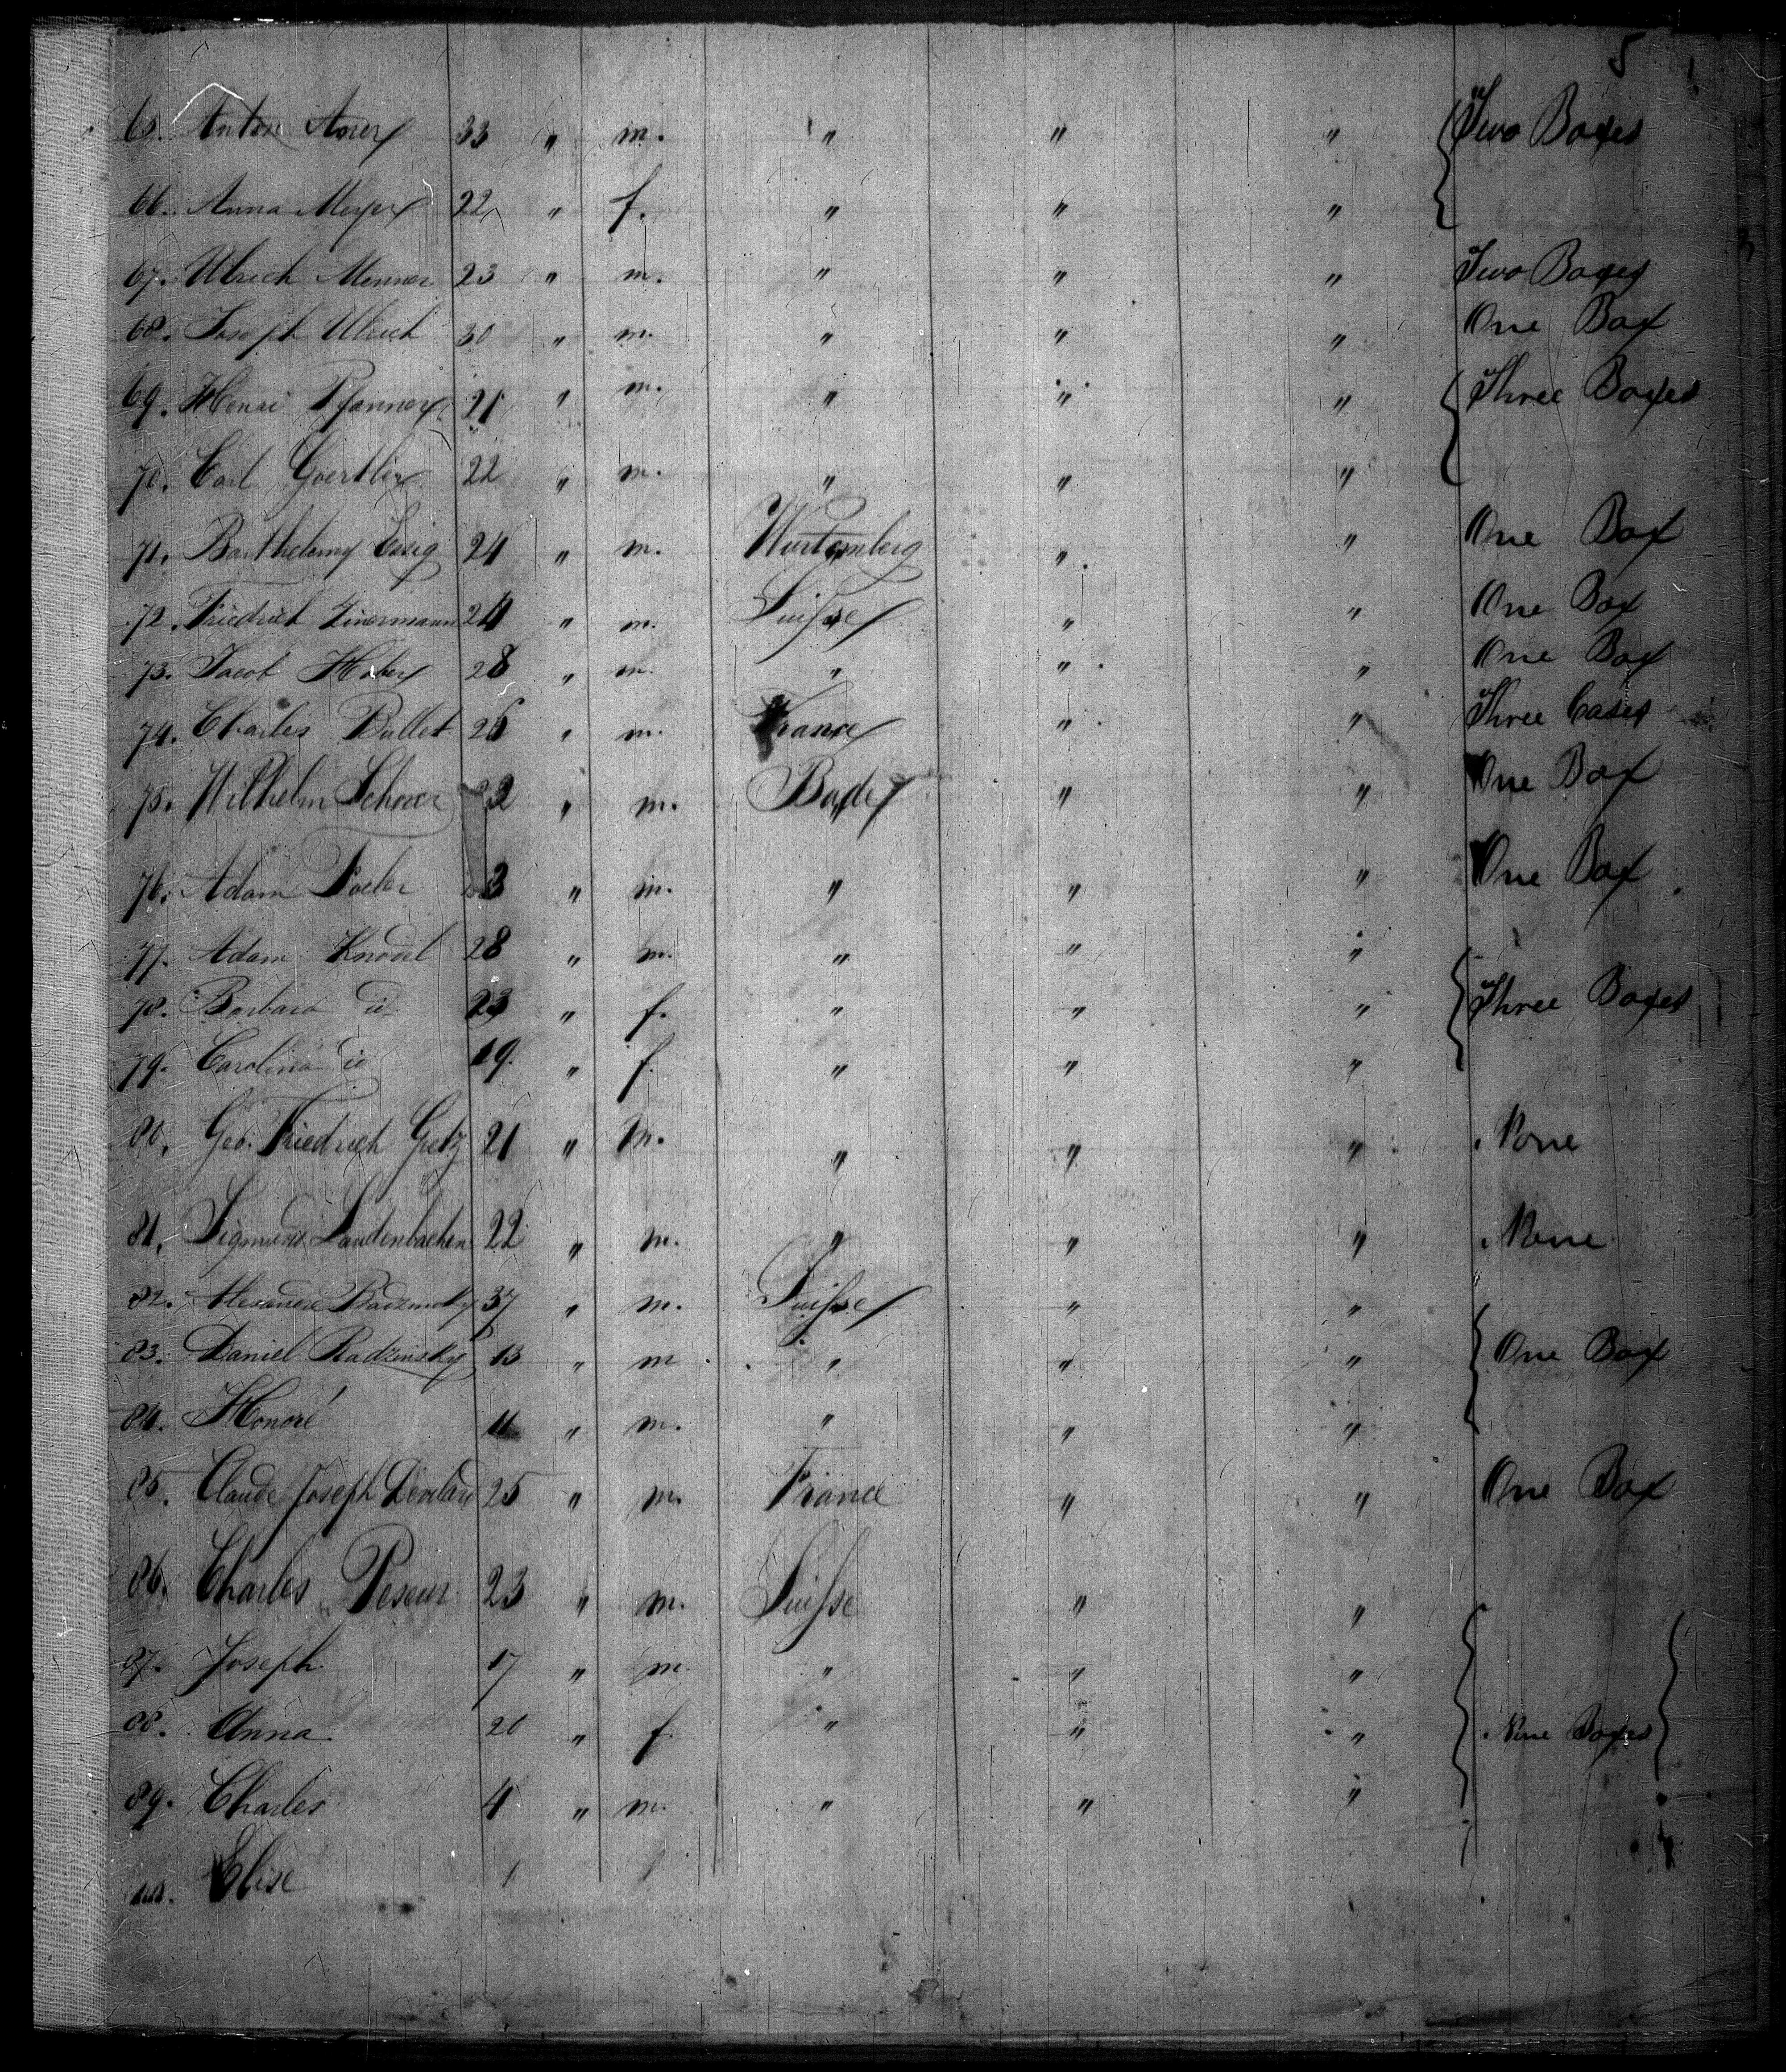 5
65. Anton Auer 33 " m. " " " Two Boxes
66. Anna Meyer 22 " f. " " "
67. Ulrich Menner 23 " m. " " " Two Boxes
68. Joseph Ulrich 30 " m. " " " One Box
69. Henri Pfanner 21 " m. " " " Three Boxes
70. Carl Goertler 22 " m. " " "
71. Barthelemy Essig 24 " m. Wurtemberg " " One Box
72. Friedrich Zinermann 24 " m. Suisse " " One Box
73. Jacob Huber 28 " m. " " " One Box
74. Charles Bullet 26 " m. France " " Three Cases
75. Wilhelm " m. Bade " " One Box
76. Adam " m. " " " One Box
77. Adam Knodel 28 " m. " " "
78. Barbara id 23 " f. " " " Three Boxes
79. Carolina id 19. " f. " " "
80. Geo. Friedrich Getz 21 " m. " " " None
81. Sigmund Laudenbachen 22 " m. " " " None
82. Alexandre Radzinsky 37 " m. Suisse " "
83. Daniel Radzinsky 13 " m " " " One Box
84. Honoré 11 " m. " " "
85. Claude Joseph 25 " m. France " " One Box
86. Charles Peseur 23 " m. Suisse " "
87. Joseph 17 " m. " " "
88. Anna 20 " f. " " " Nine Boxes
89. Charles 4 " m. " " "
Elise 1